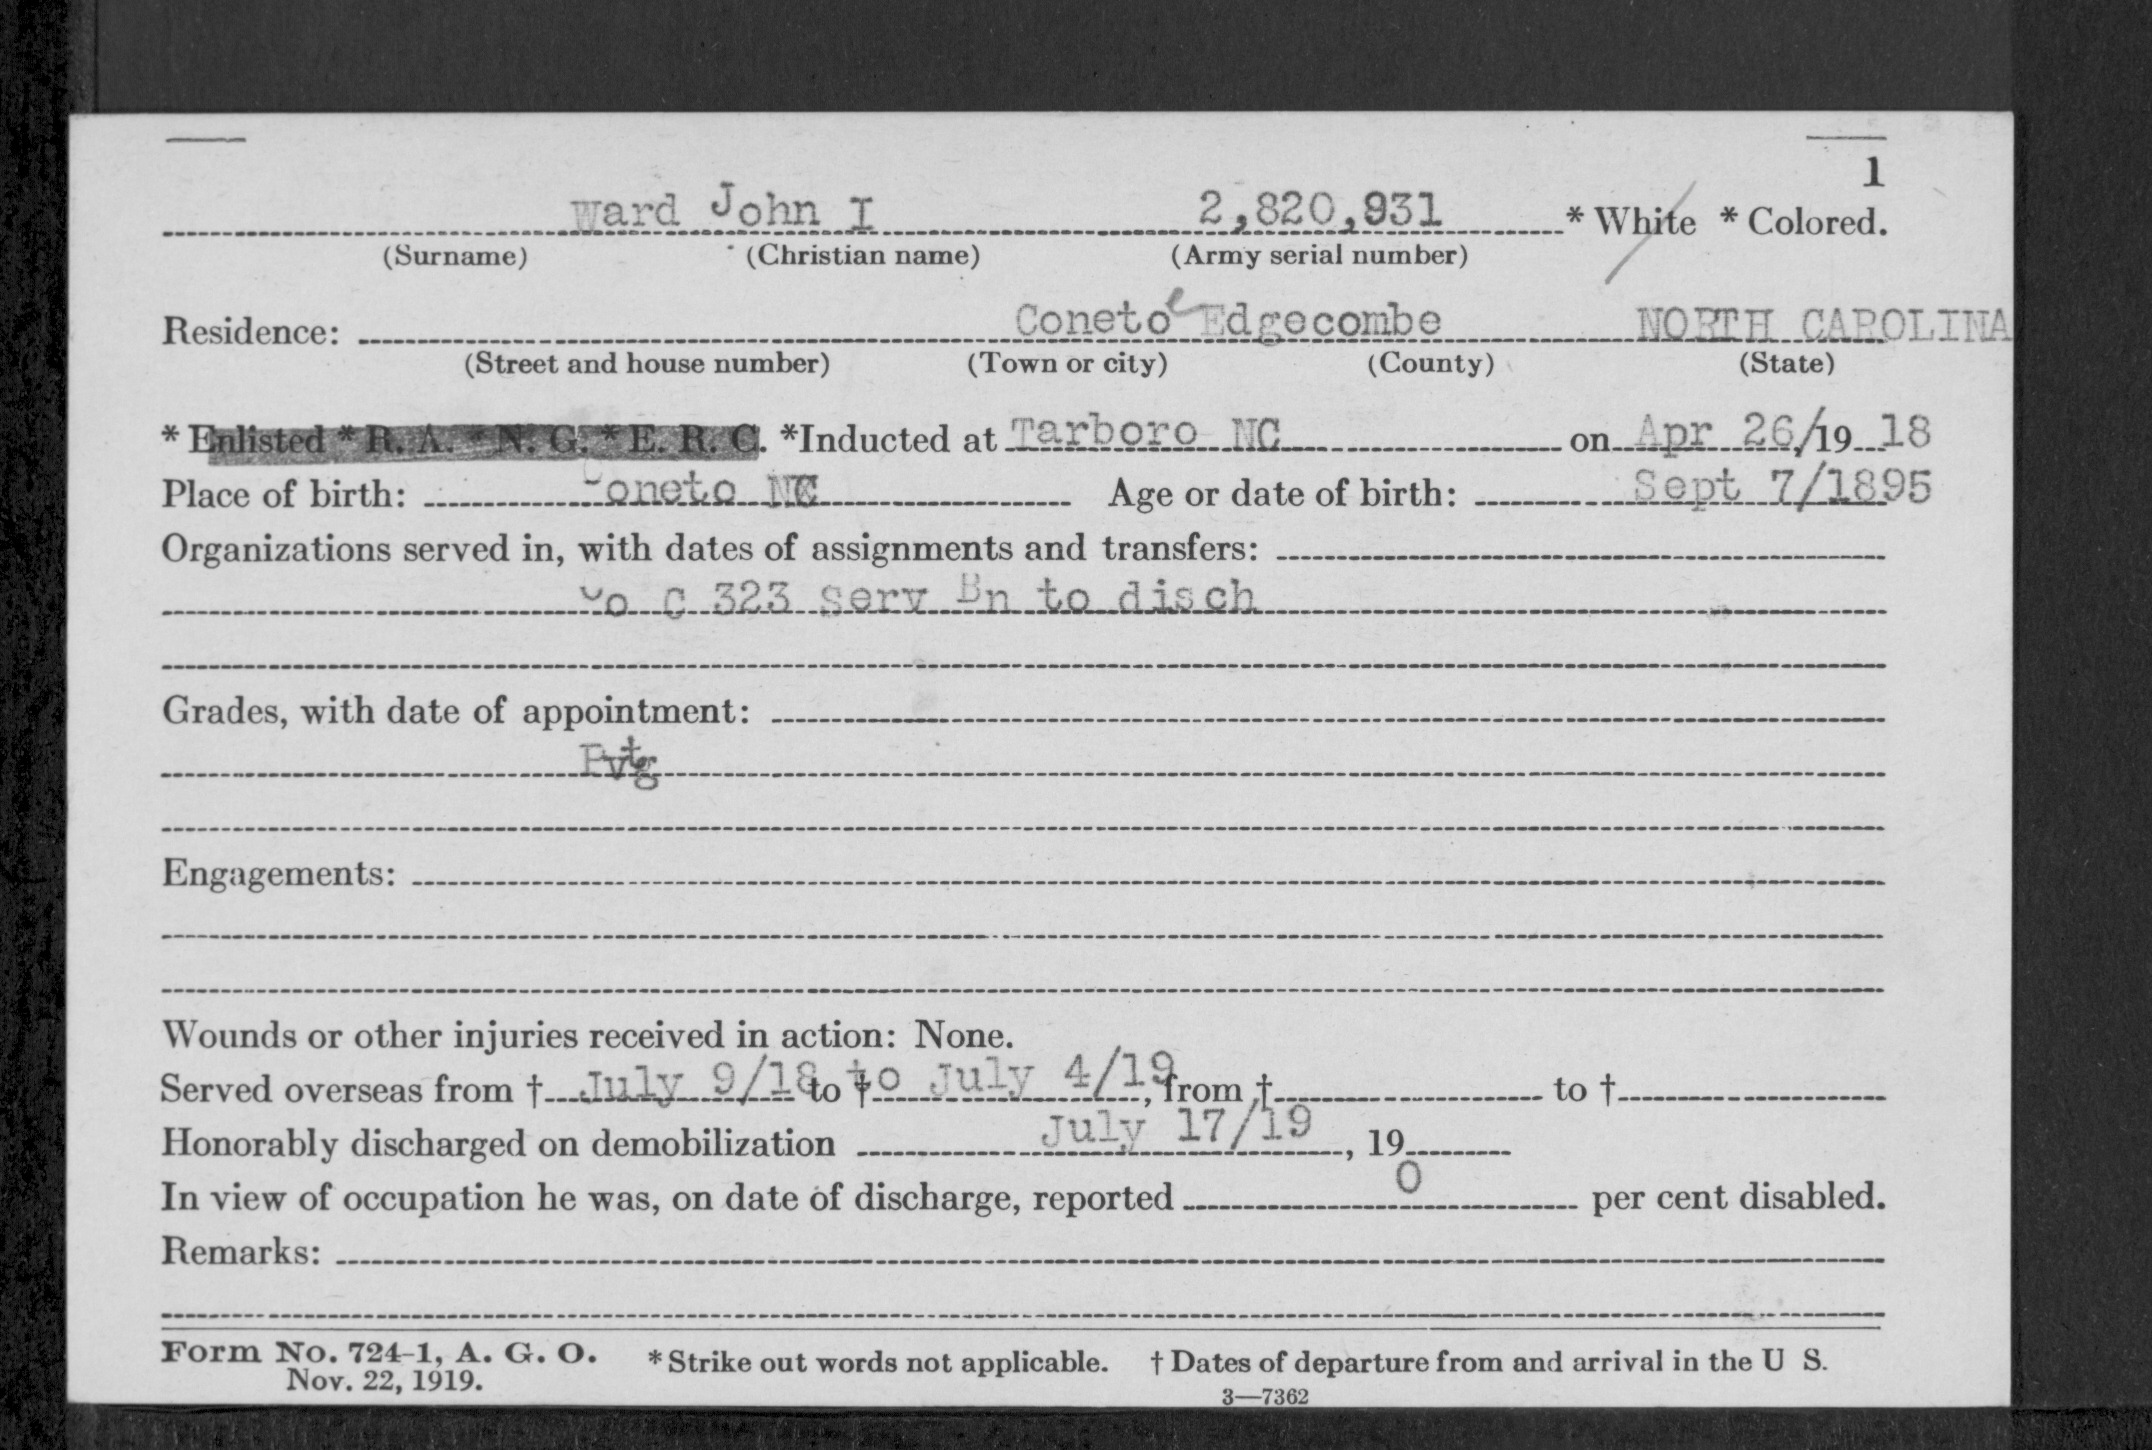 1
Ward John I 2,820,931 * White * Colored.
(Surname) (Christian name) (Army serial number)
Residence: Conetoe Edgecombe NORTH CAROLINA
(Street and house number) (Town or city) (County) (State)
* Enlisted * R. A. * N. G. * E. R. C. *Inducted at Tarboro NC on Apr 26/19 18
Place of birth: Coneto NC Age or date of birth: Sept 7/1895
Organizations served in, with dates of assignments and transfers:
Co C 323 Serv Bn to disch
Grades, with date of appointment:
Pvt
Engagements:
Wounds or other injuries received in action: None.
Served overseas from † July 9/18 to † to July 4/19, from † to †
Honorably discharged on demobilization July 17/19, 19
In view of occupation he was, on date of discharge, reported 0 per cent disabled.
Remarks:
Form No. 724-1, A. G. O. * Strike out words not applicable. † Dates of departure from and arrival in the U S.
Nov. 22, 1919.
3—7362